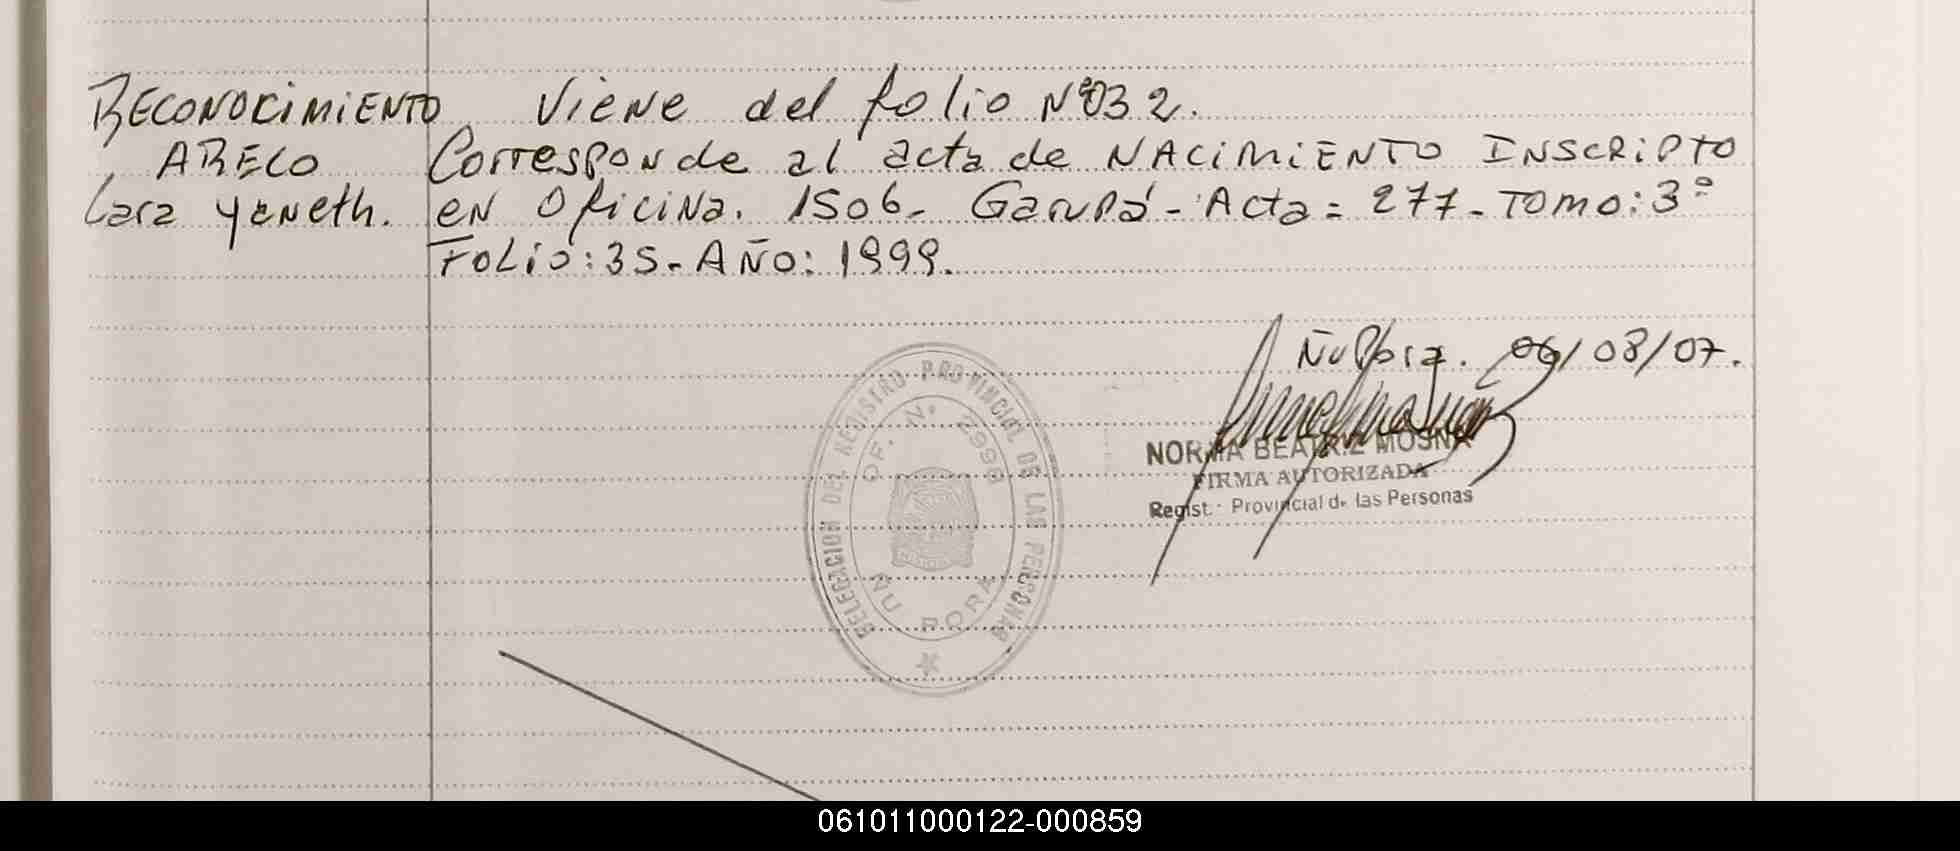 RECONOCIMIENTO Viene del folio Nº 032.
ARECO Corresponde al acta de NACIMIENTO INSCRIPTO
Lara Yaneth. en Oficina. 1506- Garupá- Acta= 277- TOMO: 3º
FOLIO: 35- AÑO: 1999.
Ñu Pora. 06/08/07.
NORMA BEATRIZ MOSNA
FIRMA AUTORIZADA
Regist. Provincial de las Personas
DELEGACION DEL REGISTRO PROVINCIAL DE LAS PERSONAS
OF. N. 2998
ÑU PORA
061011000122-000859